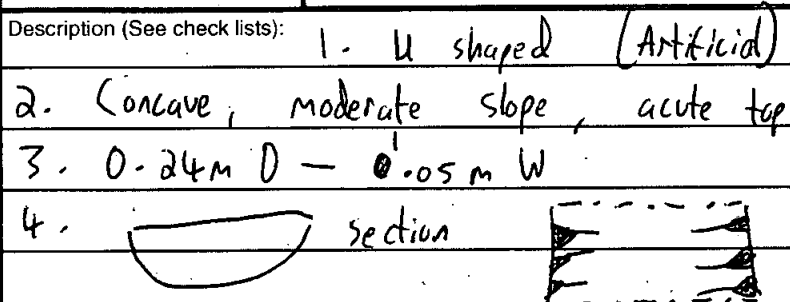 Description (See check lists): 1. U shaped (Artificial)
2. Concave, moderate slope, acute top
3. 0.24m D - 1.05m W
4. section